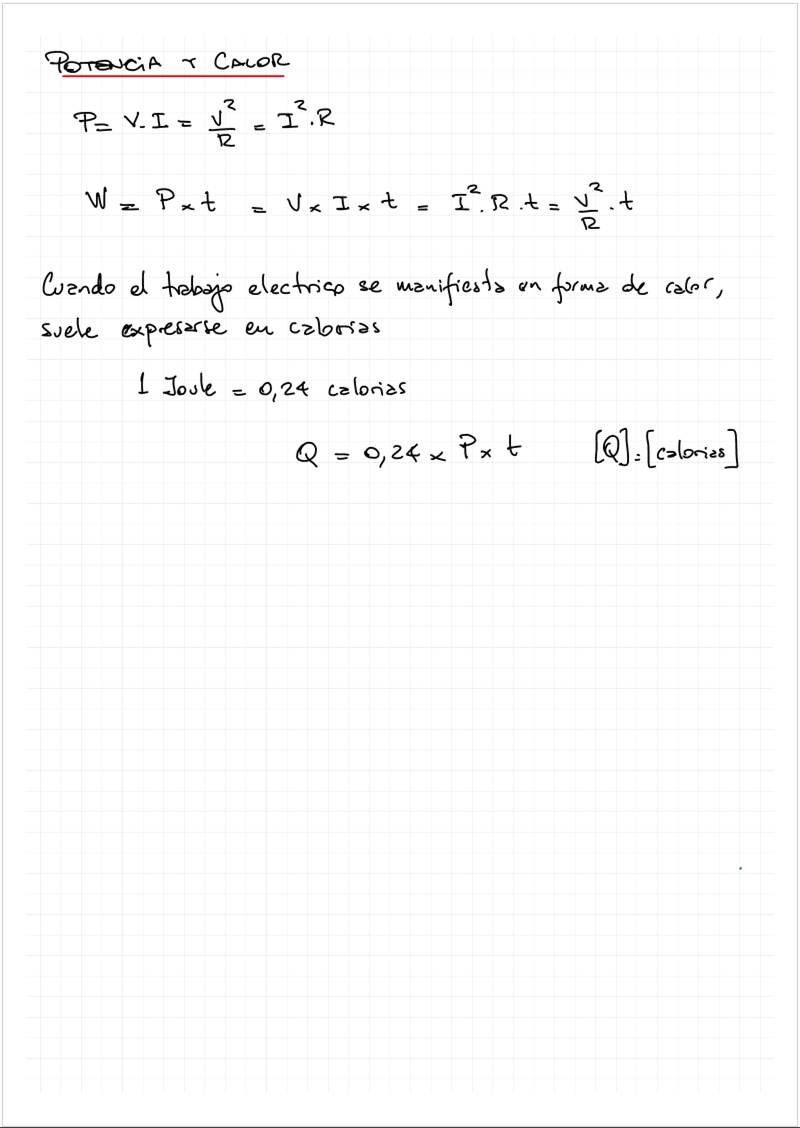 POTENCIA Y CALOR
P = V. I = V²/R = I². R
W = P x t = V x I x t = I². R . t = V²/R . t
Cuando el trabajo electrico se manifiesta en forma de calor,
suele expresarse en calorias
1 Joule = 0,24 calorias
Q = 0,24 x P x t [Q] = [calorias]